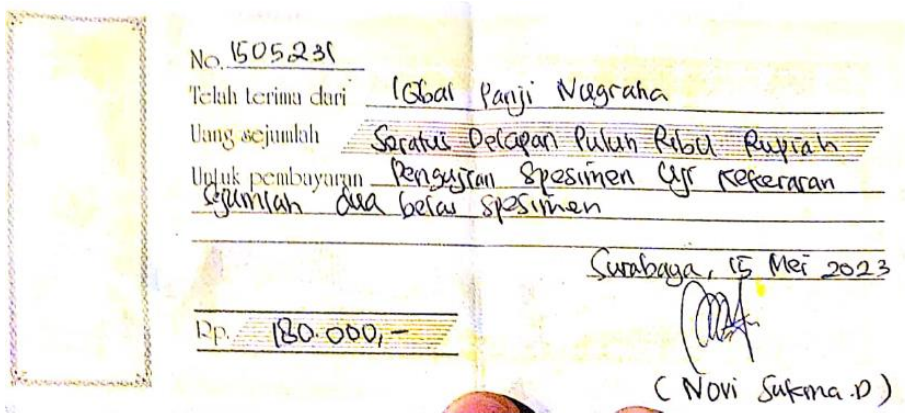 No. 1505231
Telah terima dari Iqbal Panji Nugraha
Uang sejumlah Seratus Delapan Puluh Ribu Rupiah
Untuk pembayaran Pengujian Spesimen Uji Kekerasan
Sejumlah dua belas spesimen
Surabaya, 15 Mei 2023
Rp. 180.000,-
( Novi Sukma.D )